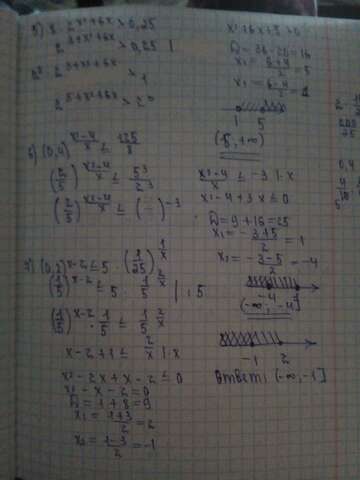 5) 8 · 2^{x²+6x} > 0,25
2^{3+x²+6x} > 0,25 |
2^{5+x²+6x} > 1
2^{5+x²+6x} > 2^0
x²+6x+5 > 0
D = 36-20 = 16
x₁ = (6+4)/2 = 5
x₂ = (6-4)/2 = 1
1 5
(5, +∞)
6) (0,4)^{(x²-4)/x} ≤ 125/8
(2/5)^{(x²-4)/x} ≤ 5³/2³
(2/5)^{(x²-4)/x} ≤ ( )^{-3}
(x²-4)/x ≤ -3 | · x
x²-4+3x ≤ 0
D = 9+16 = 25
x₁ = (-3+5)/2 = 1
x₂ = (-3-5)/2 = -4
-4 1
(-∞; -4]
7) (0,2)^{x-2} ≤ 5 · (1/25)^{1/x}
(1/5)^{x-2} ≤ 5 · (1/5)^{2/x} | : 5
(1/5)^{x-2} · 1/5 ≤ (1/5)^{2/x}
x-2+1 ≤ 2/x | · x
x²-2x+x-2 ≤ 0
x²-x-2=0
D = 1+8 = 9
x₁ = (1+3)/2 = 2
x₂ = (1-3)/2 = -1
-1 2
Ответ: (-∞, -1]